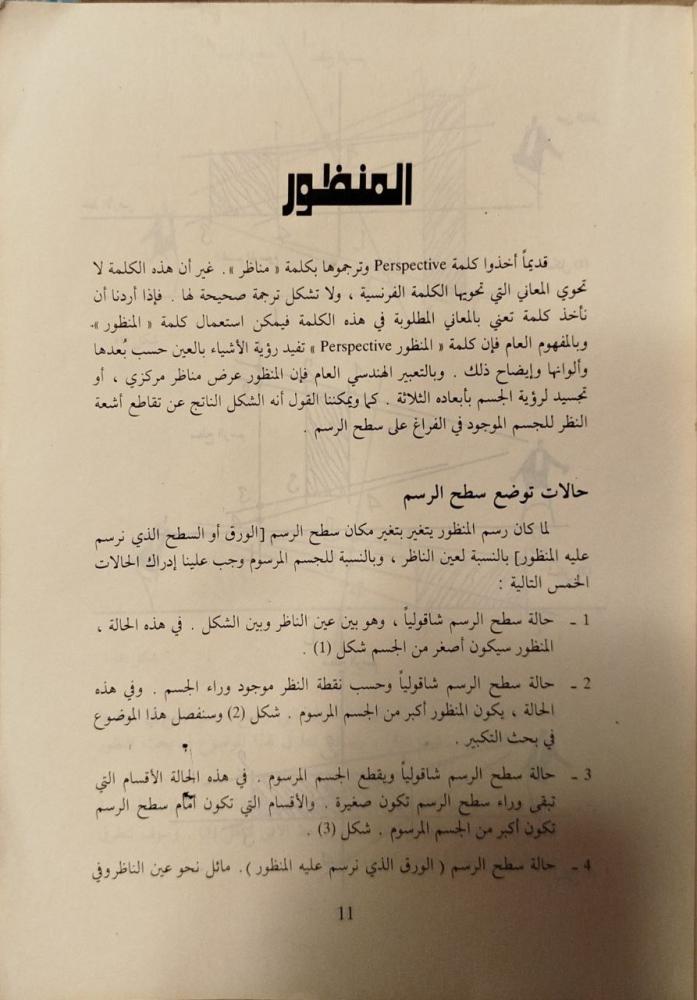 المنظور
قديماً أخذوا كلمة Perspective وترجموها بكلمة « مناظر » . غير أن هذه الكلمة لا
تحوي المعاني التي تحويها الكلمة الفرنسية ، ولا تشكل ترجمة صحيحة لها . فإذا أردنا أن
نأخذ كلمة تعني بالمعاني المطلوبة في هذه الكلمة فيمكن استعمال كلمة « المنظور » .
وبالمفهوم العام فإن كلمة « المنظور Perspective » تفيد رؤية الأشياء بالعين حسب بُعدها
وألوانها وإيضاح ذلك . وبالتعبير الهندسي العام فإن المنظور عرض مناظر مركزي ، أو
تجسيد لرؤية الجسم بأبعاده الثلاثة . كما ويمكننا القول أنه الشكل الناتج عن تقاطع أشعة
النظر للجسم الموجود في الفراغ على سطح الرسم .
حالات توضع سطح الرسم
لما كان رسم المنظور يتغير بتغير مكان سطح الرسم [الورق أو السطح الذي نرسم
عليه المنظور] بالنسبة لعين الناظر ، وبالنسبة للجسم المرسوم وجب علينا إدراك الحالات
الخمس التالية :
1 ـ حالة سطح الرسم شاقولياً ، وهو بين عين الناظر وبين الشكل . في هذه الحالة ،
المنظور سيكون أصغر من الجسم شكل (1) .
2 ـ حالة سطح الرسم شاقولياً وحسب نقطة النظر موجود وراء الجسم . وفي هذه
الحالة ، يكون المنظور أكبر من الجسم المرسوم . شكل (2) وسنفصل هذا الموضوع
في بحث التكبير .
3 ـ حالة سطح الرسم شاقولياً ويقطع الجسم المرسوم . في هذه الحالة الأقسام التي
تبقى وراء سطح الرسم تكون صغيرة . والأقسام التي تكون أمام سطح الرسم
تكون أكبر من الجسم المرسوم . شكل (3) .
4 ـ حالة سطح الرسم ( الورق الذي نرسم عليه المنظور ) . مائل نحو عين الناظر وفي
11